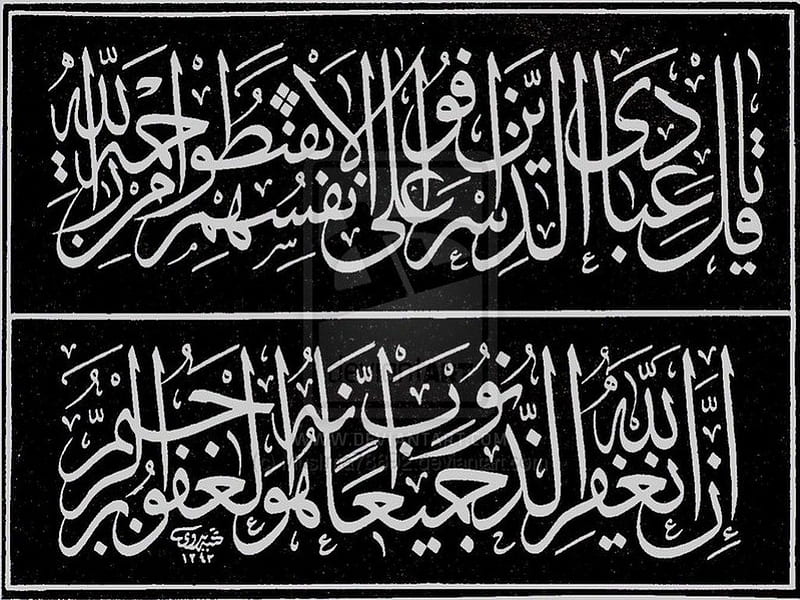 قل يا عبادي الذين أسرفوا على أنفسهم لا تقنطوا من رحمة الله
إن الله يغفر الذنوب جميعا إنه هو الغفور الرحيم
١٣٤٣
WWW.DEVIANTART.COM